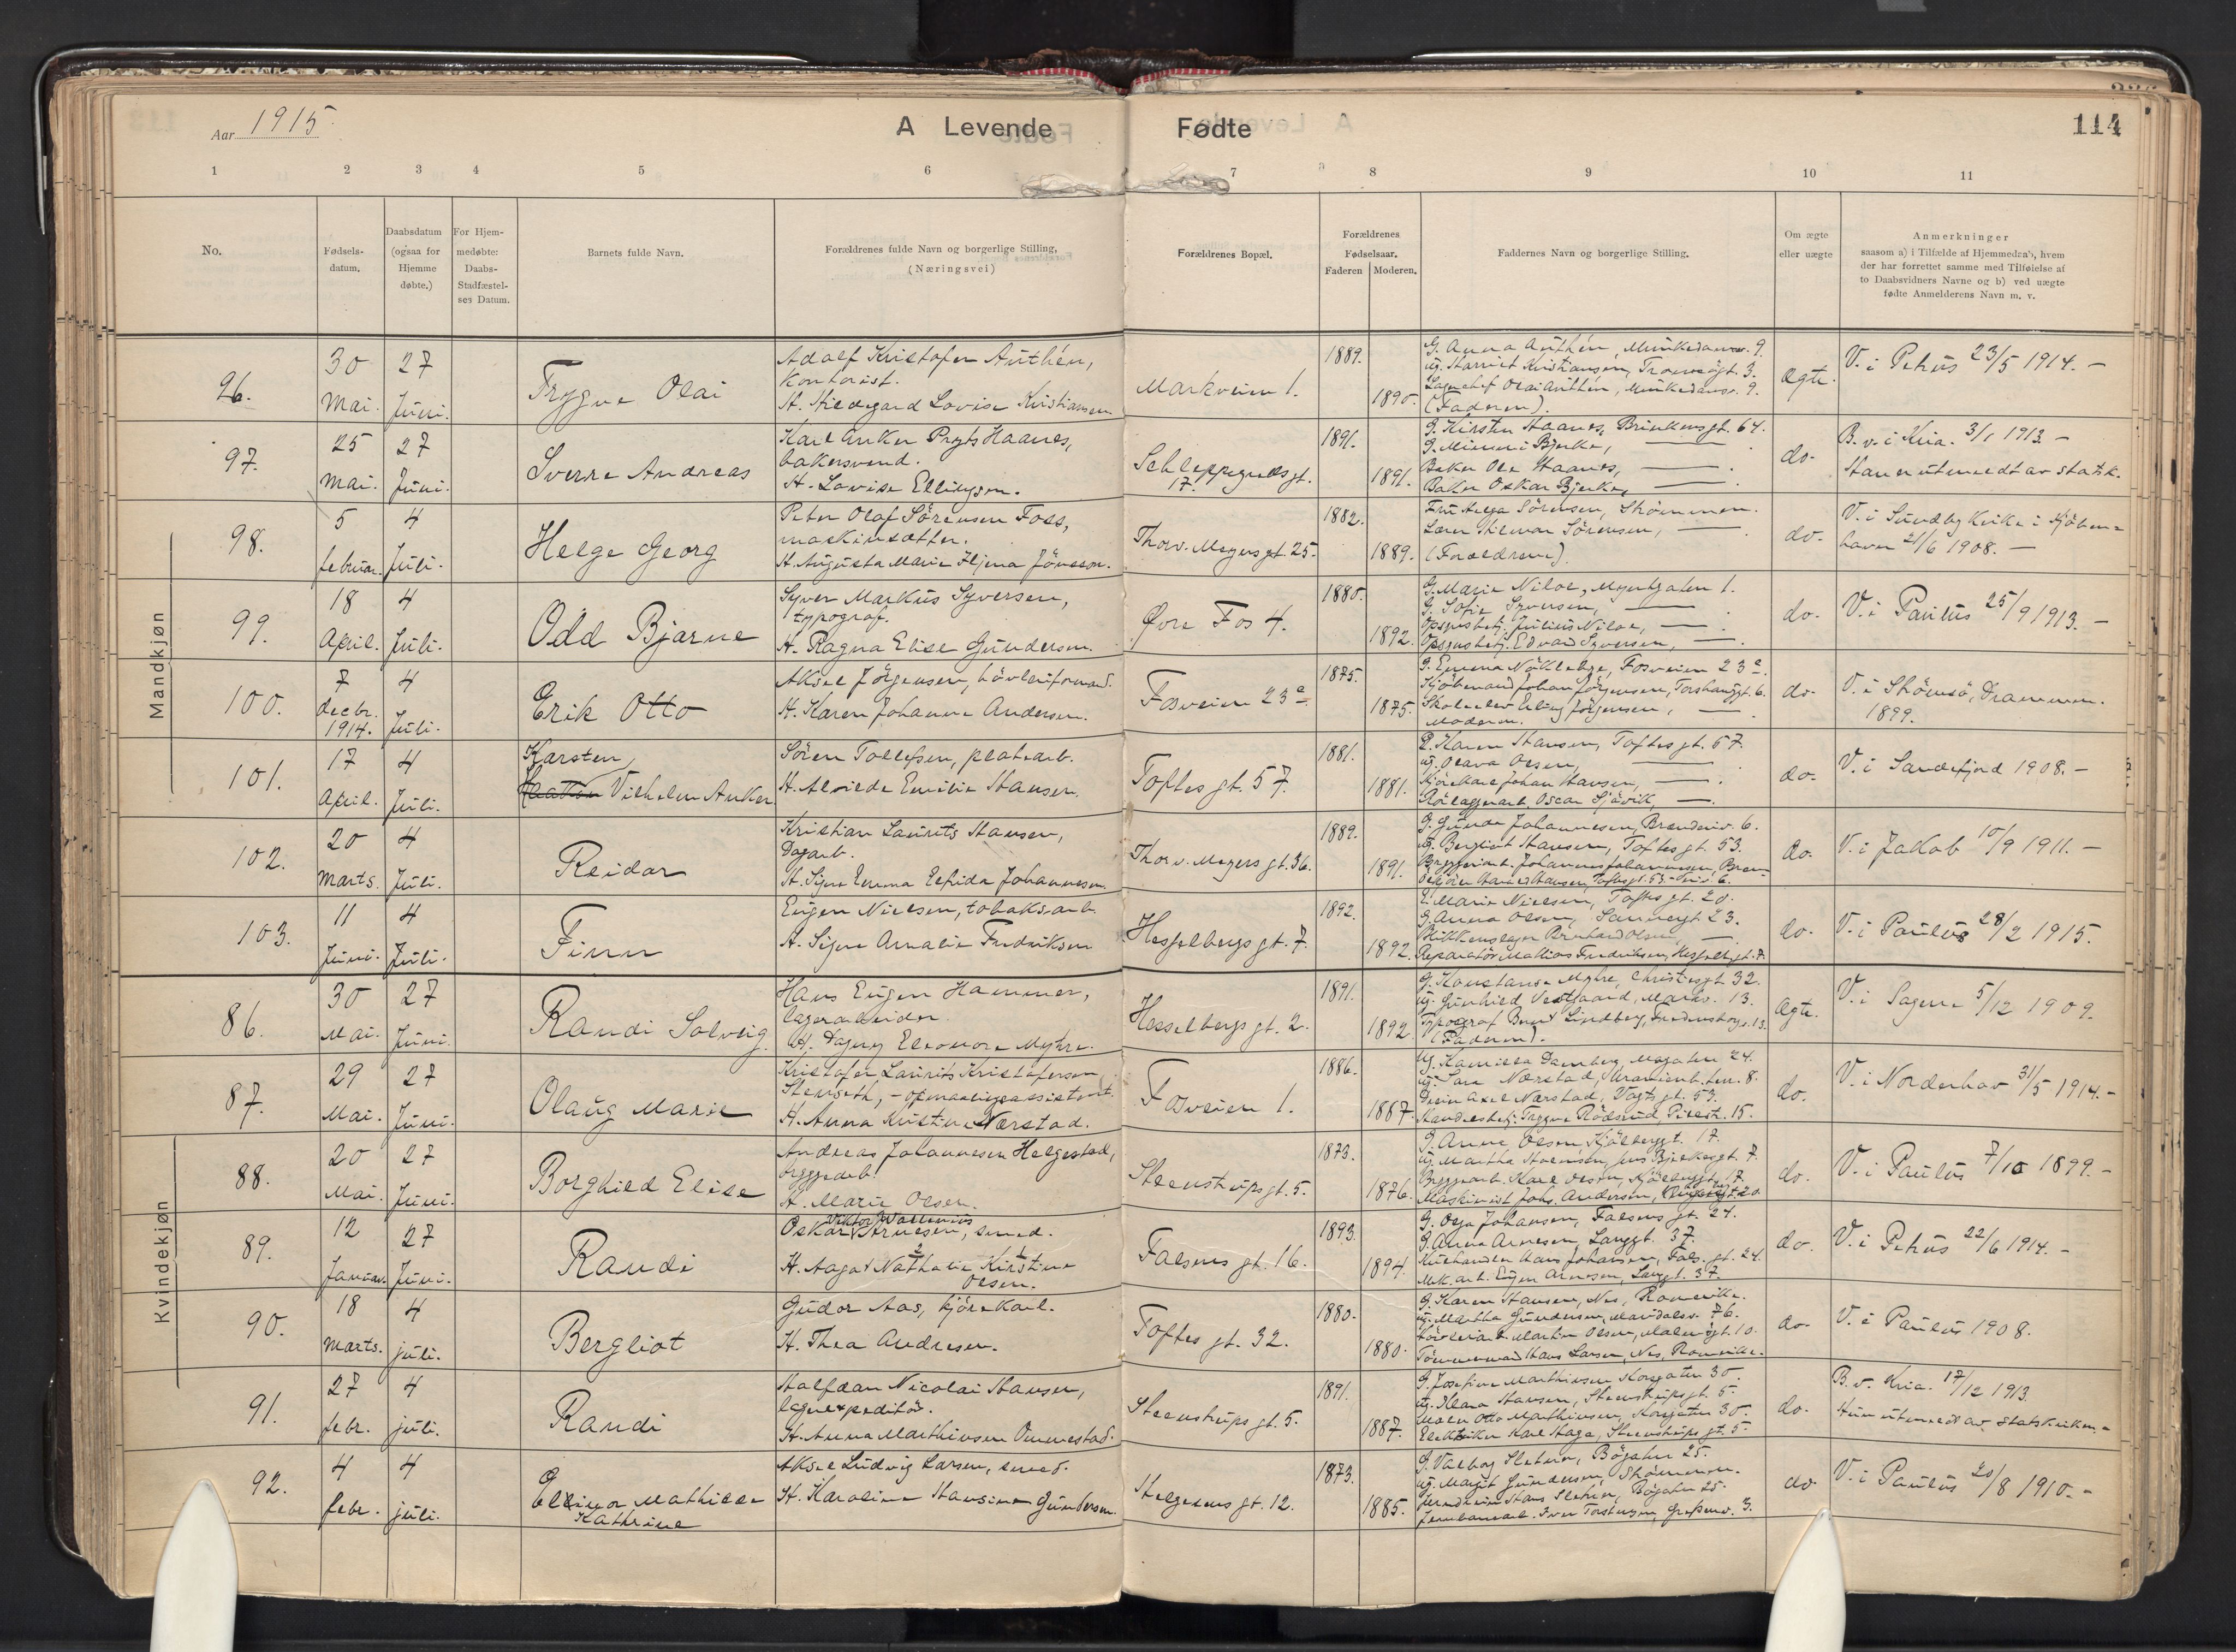 Aar 1915.
A Levende Fødte
114
1 2 3 4 5 6 7 8 9 10 11
No.
Fødsels-
datum.
Daabsdatum
(ogsaa for
Hjemme
døbte.)
For Hjem-
medøbte:
Daabs-
Stadfæstel-
ses Datum.
Barnets fulde Navn.
Forældrenes fulde Navn og borgerlige Stilling,
(Næringsvei)
Forældrenes Bopæl.
Forældrenes
Fødselsaar.
Faderen Moderen.
Faddernes Navn og borgerlige Stilling.
Om ægte
eller uægte
Anmerkninger
saasom a) i Tilfælde af Hjemmedaab, hvem
der har forrettet samme med Tilføielse af
to Daabsvidners Navne og b) ved uægte
fødte Anmelderens Navn m. v.
Mandkjøn
96.
30 Mai.
27 Juni.
Trygve Olai
Adolf Kristofer Authén,
Kontorist.
H. Hildegard Lovise Kristiansen
Markveien 1.
1889.
1890.
G. Anna Authén, Munkedamsv. 9.
ug. Harriet Kristiansen, Tromsøgt. 3.
Lagerchef Olai Authén, Munkedamsv. 9.
(Faderen).
Ægte.
V. i Petrus 23/5 1914. -
97.
25 Mai.
27 Juni.
Sverre Andreas
Karl Anker Prytz Haanes,
bakersvend.
H. Lovise Ellingsen.
Schleppegrells gt.
17.
1891.
1891.
G. Kirsten Haanes, Brinkens gt. 64.
G. Minni Bjerke, —
Baker Ole Haanes, —
Baker Oskar Bjerke, —
do.
B. v. i Kria. 3/1 1913 -
Han er utmeldt av statsk.
98.
5 februar.
4 Juli.
Helge Georg
Peter Olaf Sörensen Foss,
maskinsætter.
H. Augusta Marie Jönsson.
Thorv. Meyers gt. 25.
1882.
1889.
Fru Aslaug Sörensen, Strömmen.
Lærer Hilmar Sörensen, —
(Forældrene).
do.
V. i Sundby Kirke i Kjöben=
havn 21/6 1908. -
99.
18 April.
4 Juli.
Odd Bjarne
Syver Markus Syversen,
typograf.
H. Ragna Elise Gundersen.
Øvre Fos 4.
1880.
1892.
G. Marie Niloe, Myntgaten 1.
G. Sofie Syversen, —
Opsynsbetj. Julius Niloe, —
Opsynsbetj. Edvard Syversen, —
do.
V. i Paulus 25/9 1913. -
100.
7 decbr. 1914.
4 Juli.
Erik Otto
Aksel Jörgensen, hövleriformand.
H. Karen Johanne Andersen.
Fosveien 23 a
1875.
1875.
G. Emma Nökleby, Fosveien 23 a.
Kjöbmand Johan Jörgensen, Torshauggt. 6.
Skoleelev Erling Jörgensen, —
Moderen.
do.
V. i Strömsö, Drammen.
1899.
101.
17 April.
4 Juli.
Karsten
Vilhelm Anker
Sören Tollefsen, platearb.
H. Alvilde Emilie Hansen
Toftes gt. 57.
1881.
1881.
G. Karen Hansen, Toftes gt. 57.
ug. Olava Olsen, —
Kjörekarl Johan Hansen, —
Rörlæggerarb. Oscar Sjåvik, —
do.
V. i Sandefjord 1908. -
102.
20 Marts.
4 Juli.
Reidar
Kristian Laurits Hansen,
Dagarb.
H. Signe Emma Elfrida Johannesen
Thorv. Meyers gt. 36.
1889.
1891.
G. Gunda Johannesen, Brenneriv. 6.
ug. Bergliot Hansen, Toftes gt. 53.
Bryggeriarb. Johannes Johannesen, Bren-
neriv. 6.
do.
V. i Jakob 10/9 1911. -
103.
11 Juni.
4 Juli.
Finn
Eugen Nielsen, tobaksarb.
H. Signe Amalie Fredriksen
Hesselbergs gt. 7.
1892.
1892.
E. Marie Nielsen, Toftes gt. 20.
G. Anna Olsen, Sannergt. 23.
Blikkenslager Bernhard Olsen, —
Reparatör Mathias Fredriksen, Hesselb. gt. 7.
do.
V. i Paulus 28/2 1915.
Kvindekjøn
86.
30 Mai.
27 Juni.
Randi Solveig
Hans Eugen Hammer,
lagerarbeider.
H. Dagny Eleonora Myhre.
Hesselbergs gt. 2.
1891.
1892.
G. Konstanse Myhre, Christies gt. 32.
ug. Gunhild Vestgaard, Markv. 13.
Typograf Bernt Lindberg, Fredensborgv. 13.
(Faderen).
Ægte.
V. i Sagene 5/12 1909.
87.
29 Mai.
27 Juni.
Olaug Marie
Kristofer Laurits Kristofersen
Stenseth, - opmaalingsassistent.
H. Anna Kristine Nærstad.
Fosveien 1.
1886.
1887.
ug. Kamilla Damberg, Møgaten 24.
ug. Sara Nærstad, 8.
Axel Nærstad, Vogts gt. 59.
Handelsbetj. Trygve Rödsrud, Pilestr. 15.
do.
V. i Norderhov 31/5 1914. -
88.
20 Mai.
27 Juni.
Borghild Elise
Andreas Johannesen Helgestad,
bryggearb.
H. Marie Olsen.
Steenstrups gt. 5.
1873.
1876.
G. Anne Olsen, Kjölberggt. 17.
ug. Martha Svensen, Jens Bjelkesgt. 7.
Bryggearb. Karl Olsen, Kjölberggt. 17.
Maskinist Johs. Andersen, 20.
do.
V. i Paulus 7/10 1899. -
89.
12 Januar.
27 Juni.
Randi
Viktor Wallenius
Oskar Arnesen, smed.
H. Aagot Nathalie Kirstine
Olsen.
Falsens gt. 16.
1893.
1894.
G. Olga Johansen, Falsens gt. 24.
G. Anna Arnesen, Langgt. 37.
Kulhandler Hans Johansen, Fals. gt. 24.
Mek. arb. Eugen Arnesen, Langgt. 37.
do.
V. i Petrus 22/6 1914. -
90.
18 Marts.
4 juli.
Bergliot
Gudor Aas, kjörekarl.
H. Thea Andresen.
Toftes gt. 32.
1880.
1880.
G. Karen Hansen, Nes, Romerike.
ug. Martha Gundersen, Maridalsv. 76.
Hövleriarb. Martin Olsen, Malerögt. 10.
Tömmermand Hans Larsen, Nes, Romerike.
do.
V. i Paulus 1908.
91.
27 febr.
4 juli.
Randi
Halfdan Nicolai Hansen,
lagerexpeditör.
H. Anna Marthinsen Ommestad.
Steenstrups gt. 5.
1891.
1887.
G. Josefine Marthinsen, Korsgaten 30.
ug. Klara Hansen, Steenstrups gt. 5.
Maler Otto Marthinsen, Korsgaten 30.
Elektriker Karl Haga, Steenstrups gt. 5.
do.
B. v. Kria. 17/12 1913
Hun utmeldt av statskirken. -
92.
4 febr.
4 juli.
Ellinor Mathilde
Kathrine
Aksel Ludvig Larsen, smed.
H. Karoline Hansine Gundersen.
Helgesens gt. 12.
1873.
1885.
G. Valborg Sletten, Bögaten 25.
ug. Margit Gundersen, Strömmen.
Hans Sletten, Bögaten 25.
Jernbanearb. Iver Torstensen, 3.
do.
V. i Paulus 20/8 1910. -